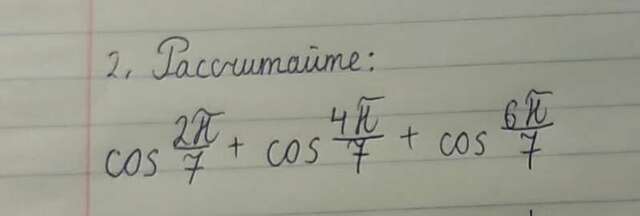 2. Рассчитайте:
cos 2π/7 + cos 4π/7 + cos 6π/7